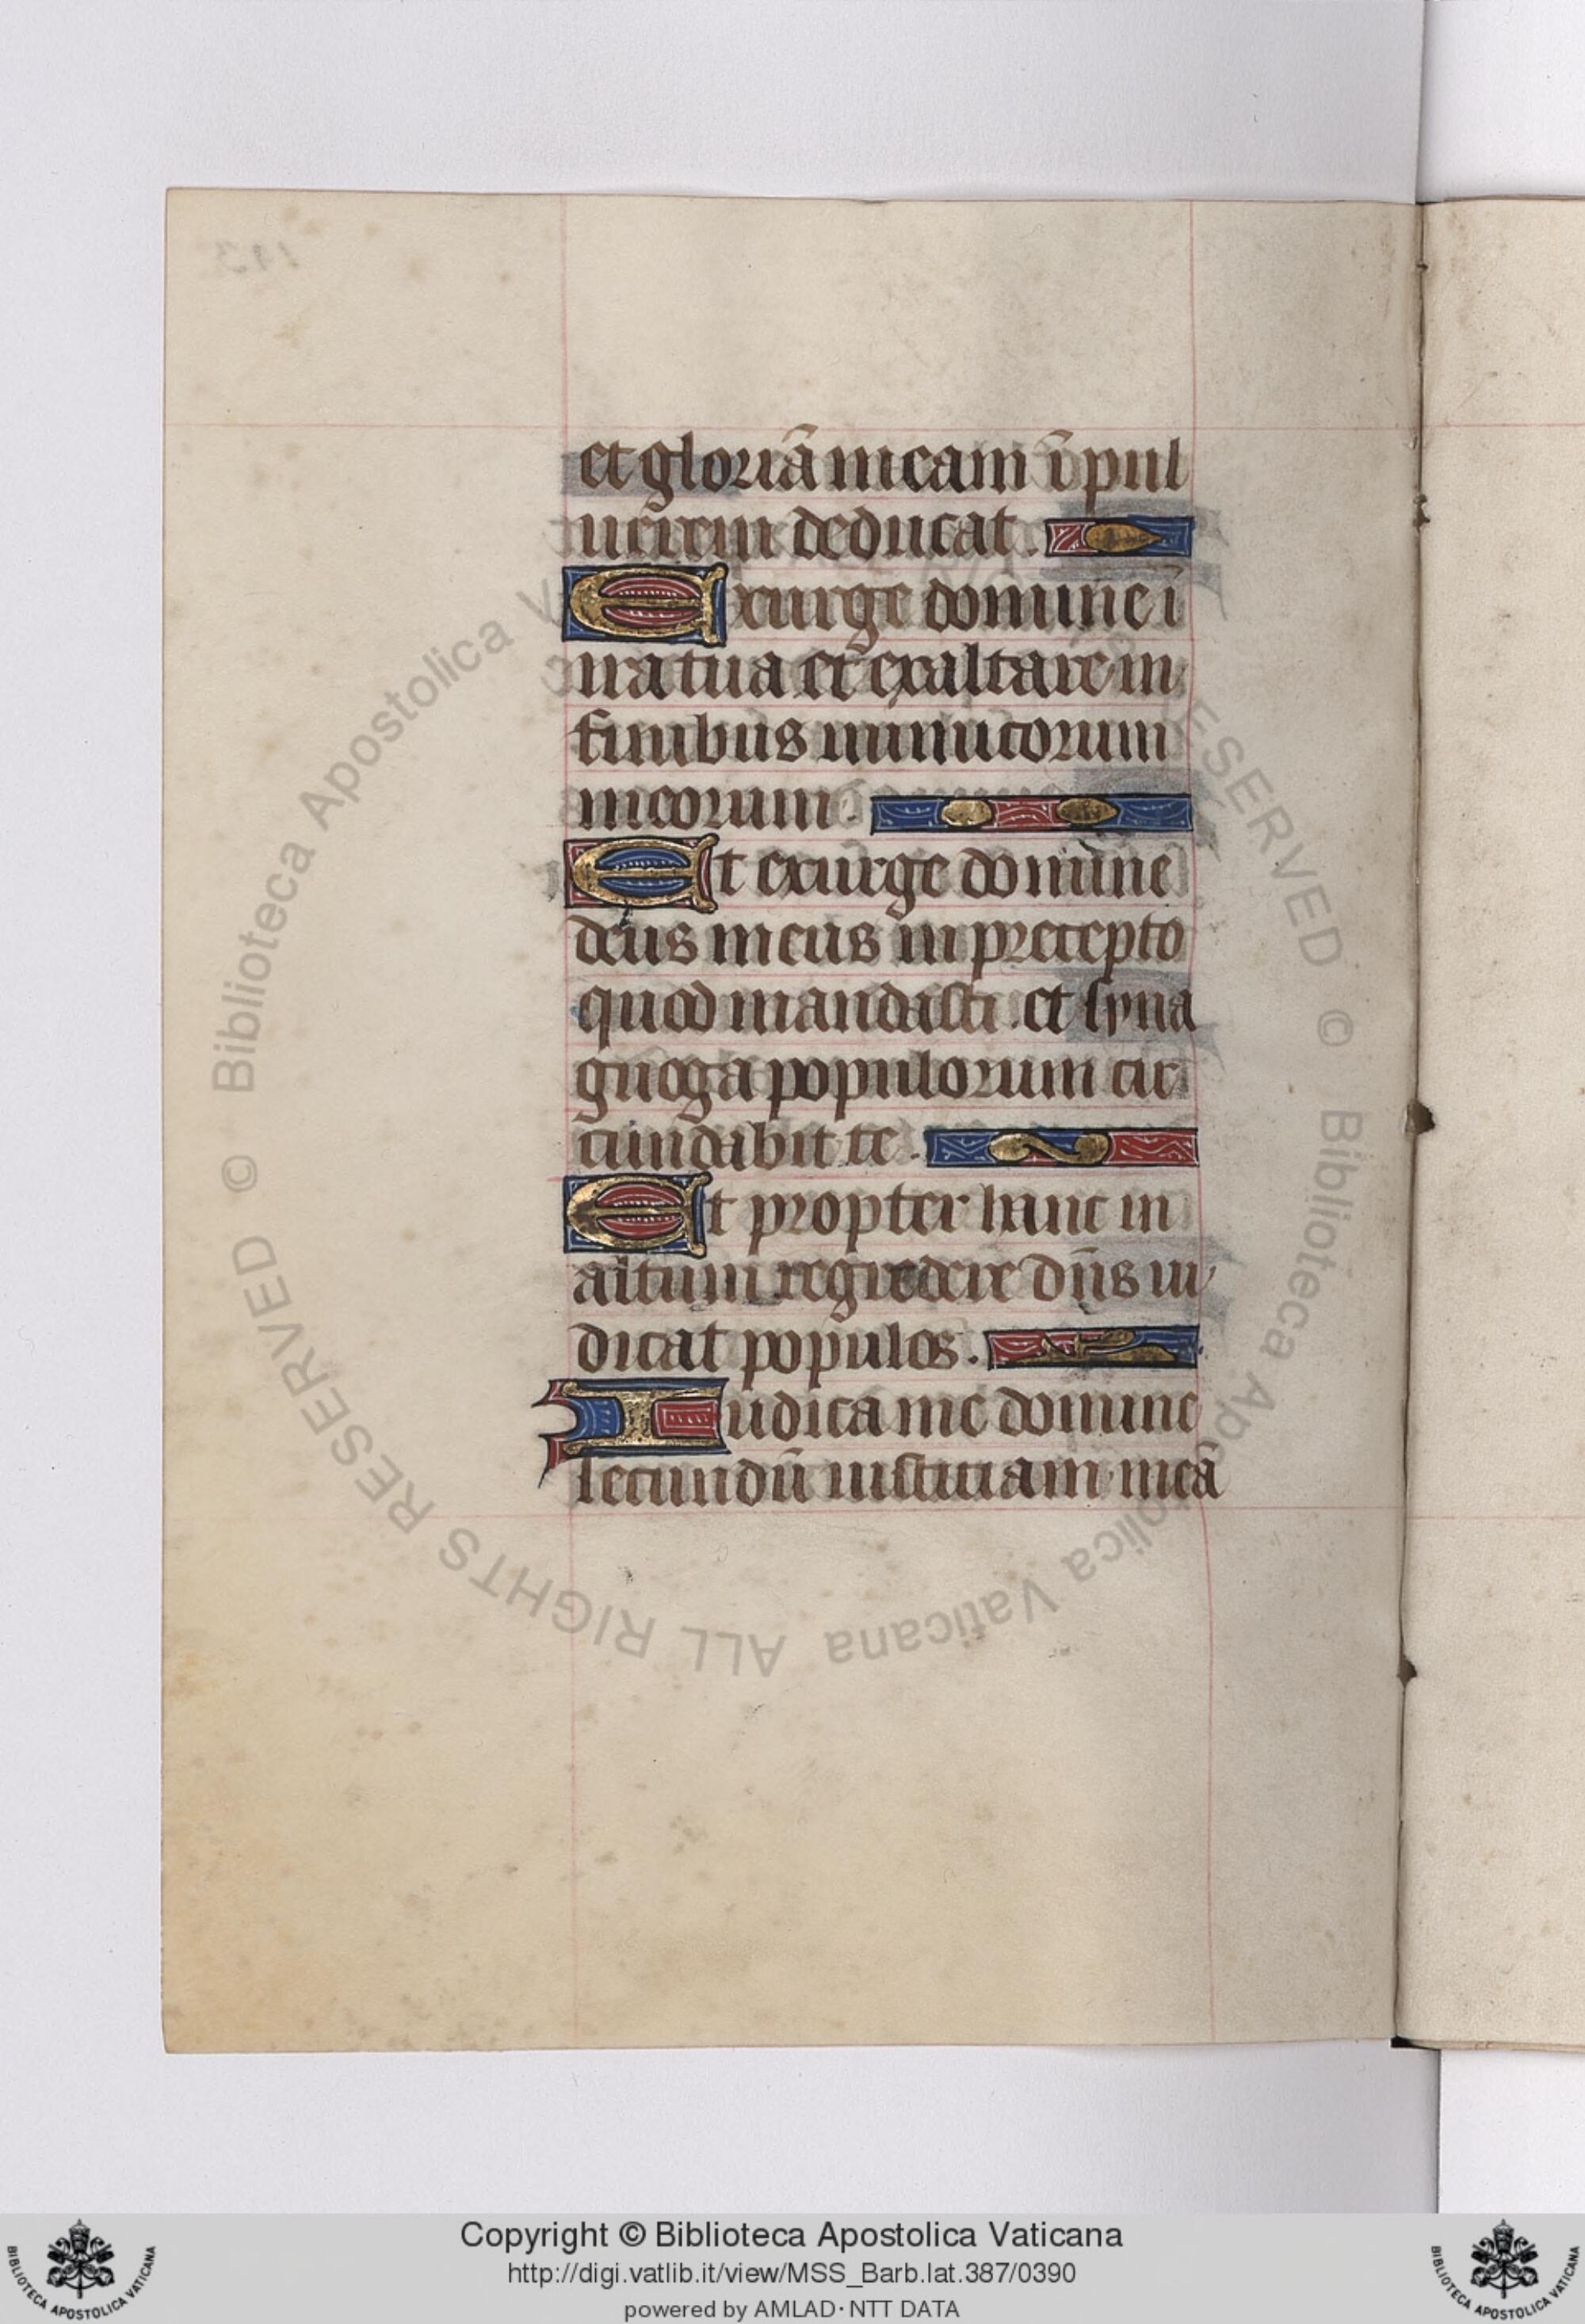 et gloriā meam ī pul
uerem deducat.
Exurge domine ī
ira tua et exaltare in
finibus inimicorum
meorum.
Et exurge domine
deus meus in precepto
quod mandasti. et syna
guoga populorum cir
cundabit te.
Et propter hanc in
altum regredere dn̄s iu
dicat populos.
Iudica me domine
secundū iusticiam meā
113
© Biblioteca Apostolica Vaticana ALL RIGHTS RESERVED © Biblioteca Apostolica Vaticana ALL RIGHTS RESERVED
Copyright © Biblioteca Apostolica Vaticana
http://digi.vatlib.it/view/MSS_Barb.lat.387/0390
powered by AMLAD · NTT DATA
BIBLIOTECA APOSTOLICA VATICANA
BIBLIOTECA APOSTOLICA VATICANA